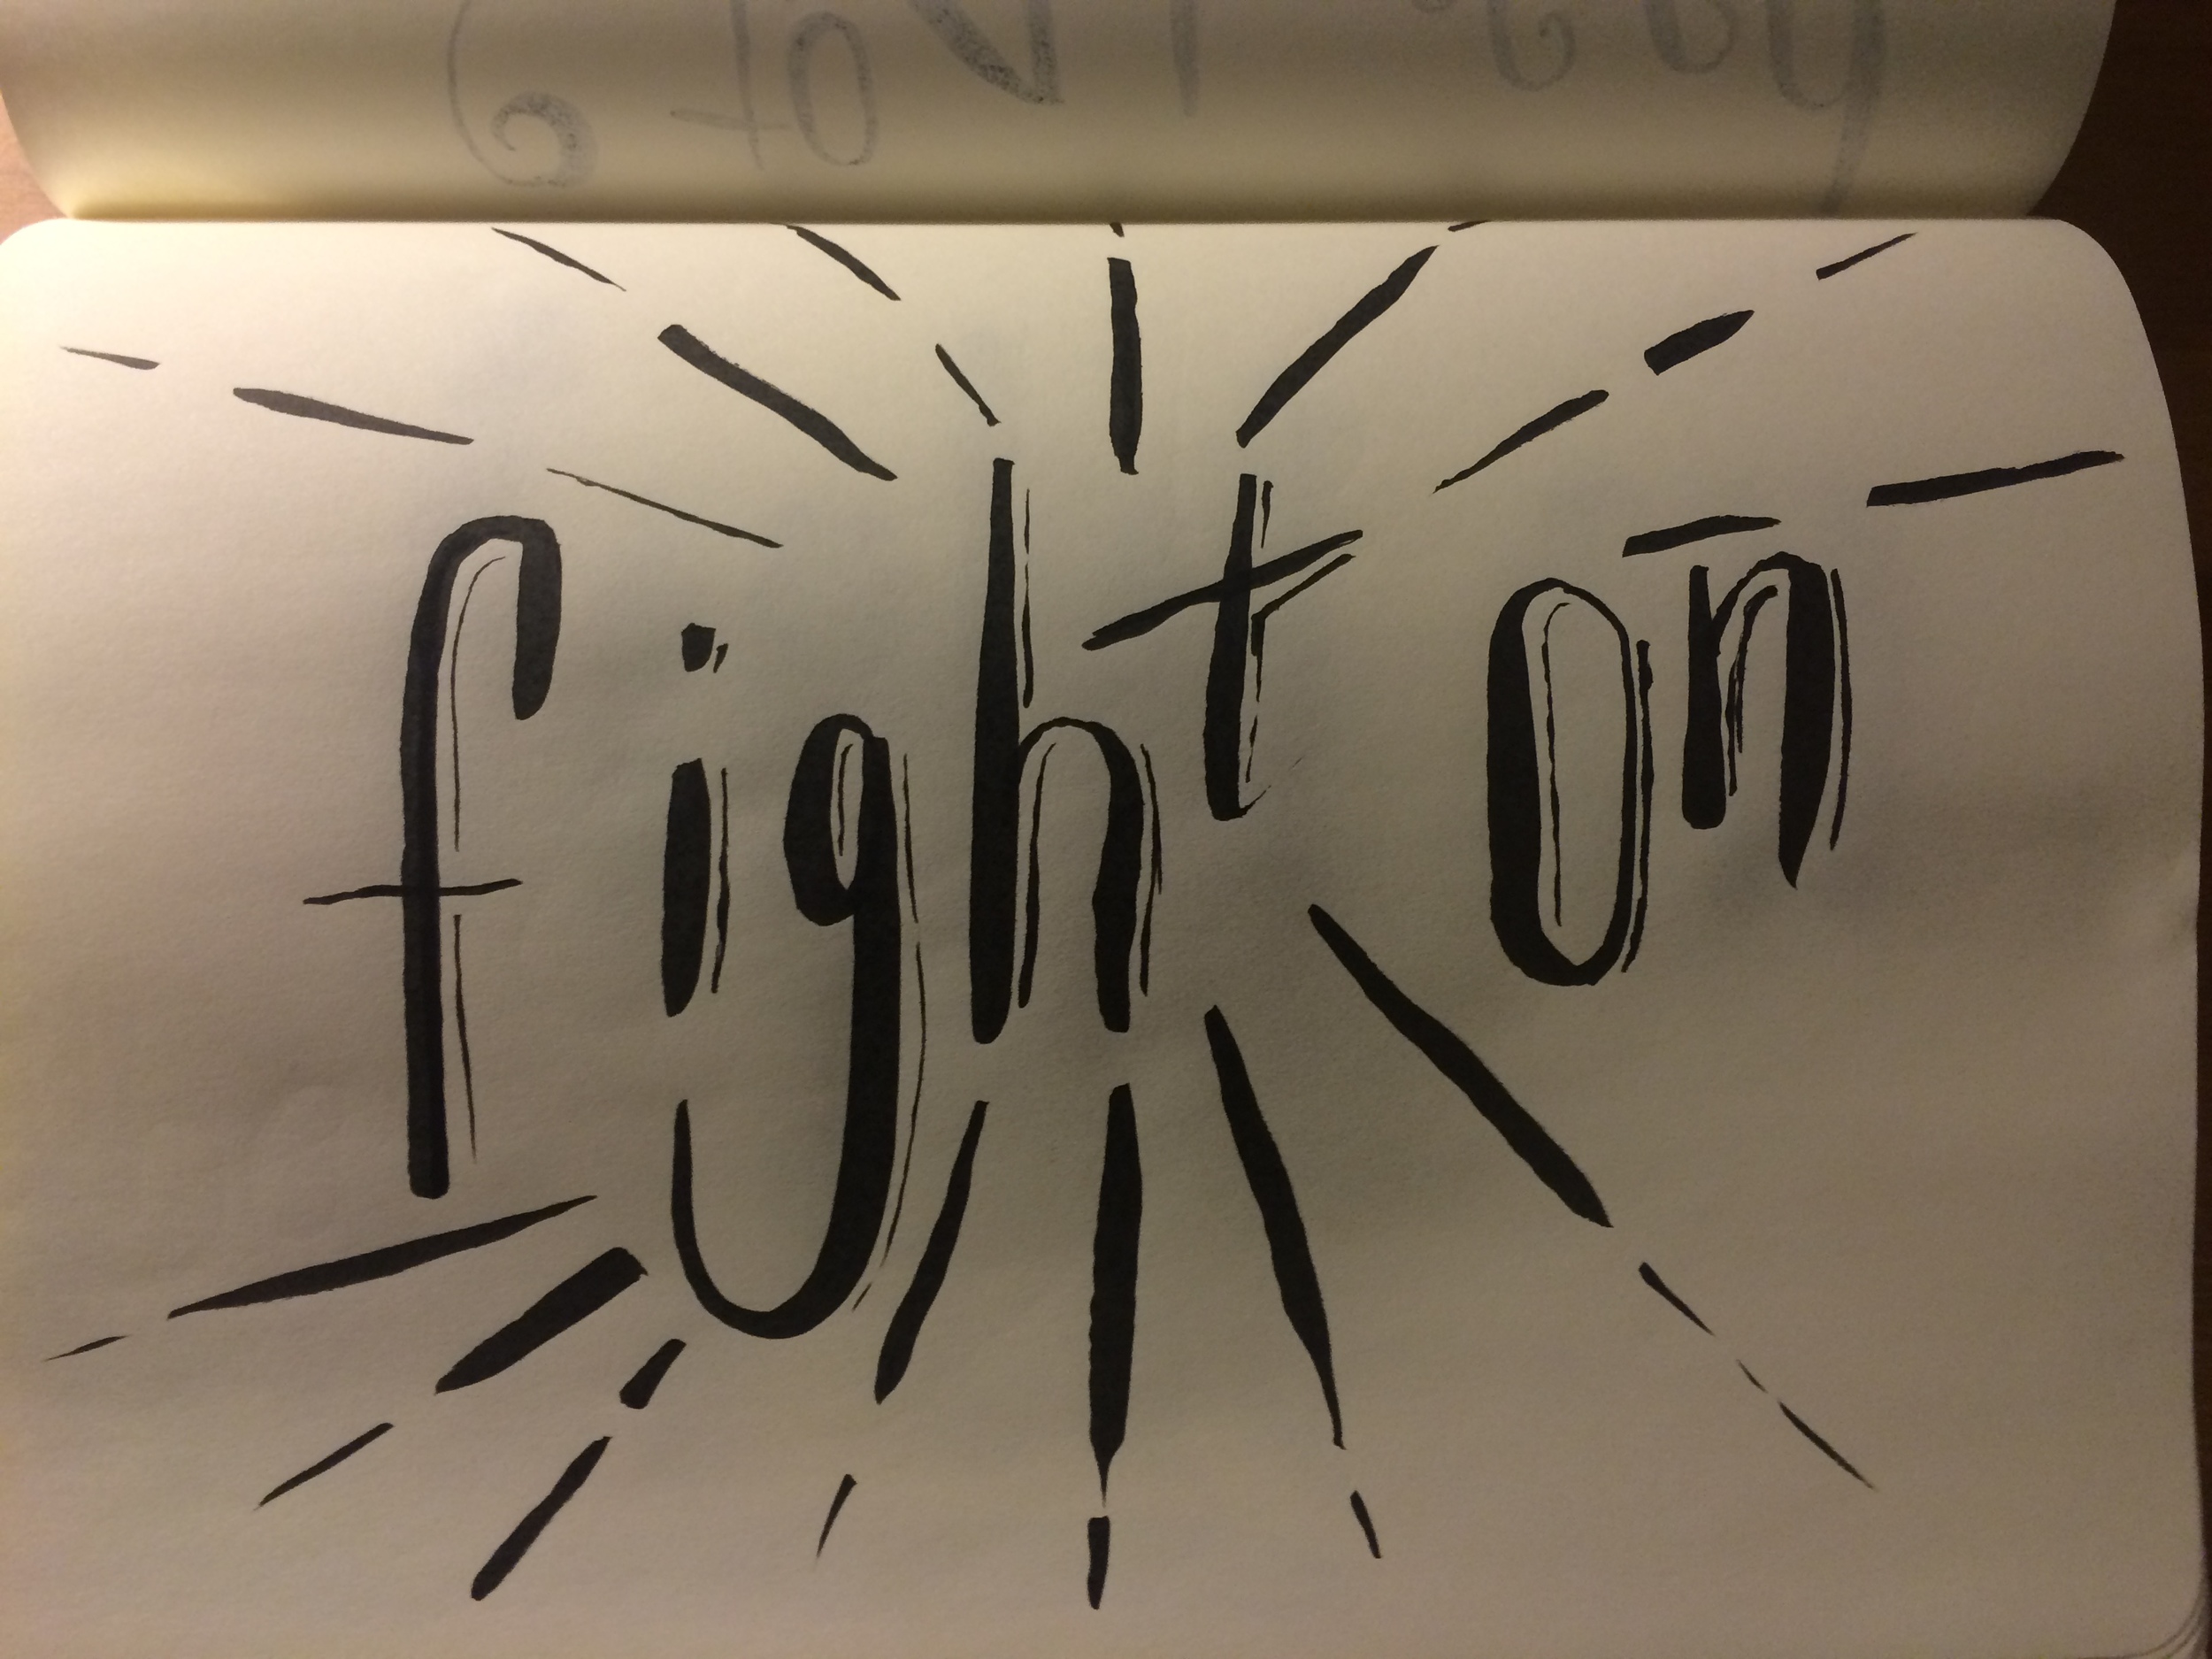 fight on